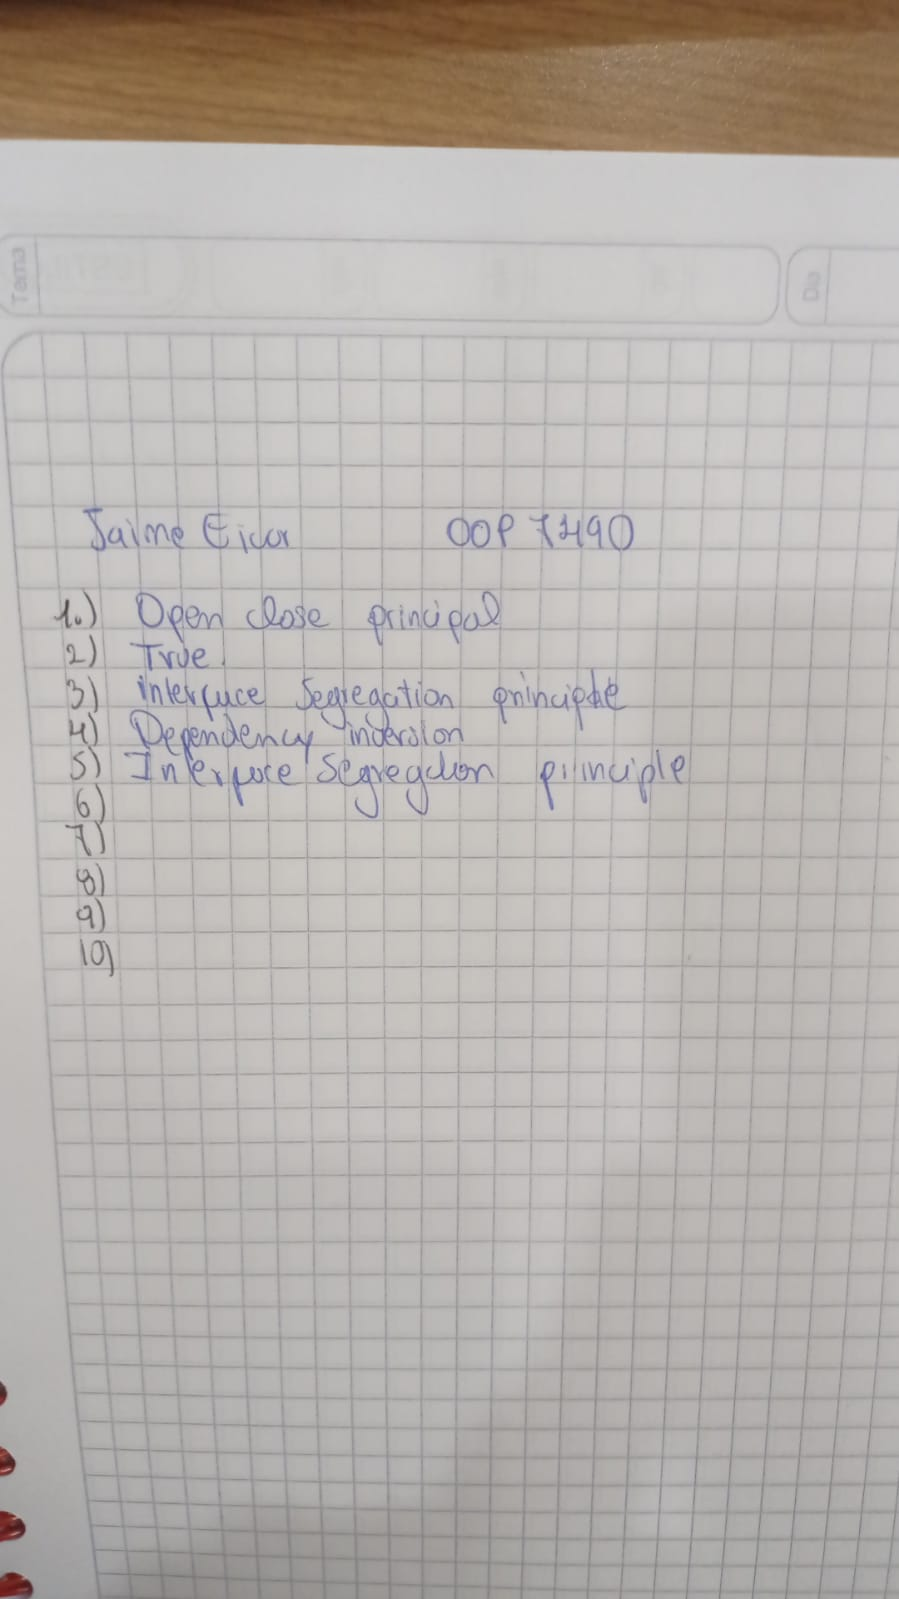 Tema
Dia
Jaime OOP 7490
1.) Open close principal
2) True
3) interface Segregation principle
4) Dependency inversion
5) Interface Segregation principle
6)
7)
8)
9)
10)